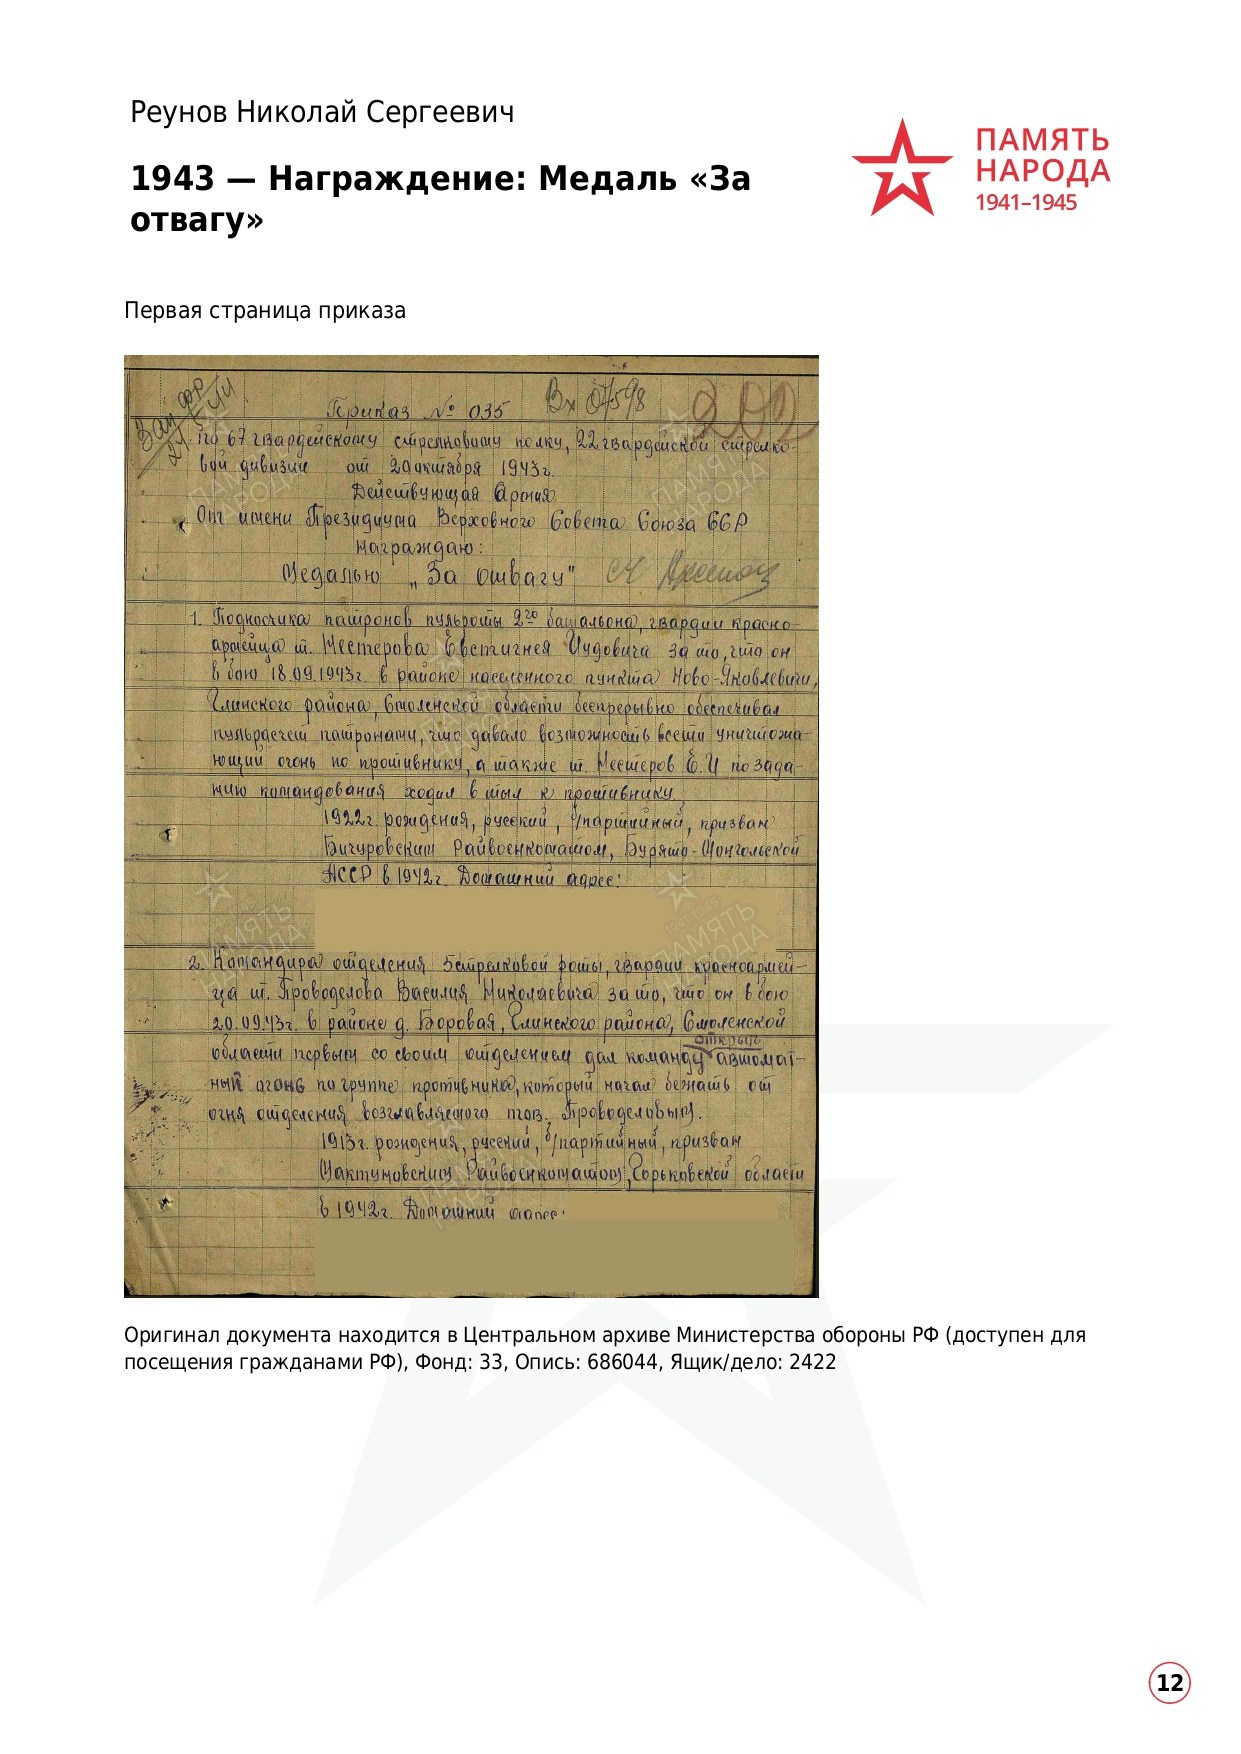 Реунов Николай Сергеевич
1943 — Награждение: Медаль «За
отвагу»
ПАМЯТЬ
НАРОДА
1941–1945
Первая страница приказа
Приказ № 035 Вх 07598
по 67 гвардейскому стрелковому полку, 22 гвардейской стрелко-
вой дивизии от 20 октября 1943г.
Действующая Армия
От имени Президиума Верховного Совета Союза ССР
награждаю:
Медалью „За отвагу"
1. Подносчика патронов пульроты 2го батальона, гвардии красно-
армейца т. Нестерова Евстигнея Иудовича за то, что он
в бою 18.09.1943г. в районе населенного пункта Ново-Яковлевичи,
Глинского района, Смоленской области беспрерывно обеспечивал
пульрасчет патронами, что давало возможность вести уничтожа-
ющий огонь по противнику, а также т. Нестеров Е.И по зада-
нию командования ходил в тыл к противнику.
1922г. рождения, русский, б/партийный, призван
Бичурским Райвоенкоматом, Бурято-Монгольской
АССР в 1942г. Домашний адрес:
2. Командира отделения 5 стрелковой роты, гвардии красноармей-
ца т. Проводелова Василия Николаевича за то, что он в бою
20.09.43г. в районе д. Боровая, Глинского района, Смоленской
открыть
области первым со своим отделением дал команду автомат-
ный огонь по группе противника, который начал бежать от
огня отделения возглавляемого тов. Проводеловым.
1913г. рождения, русский, б/партийный, призван
Райвоенкоматом, Горьковской области
в 1942г. Домашний адрес:
Оригинал документа находится в Центральном архиве Министерства обороны РФ (доступен для
посещения гражданами РФ), Фонд: 33, Опись: 686044, Ящик/дело: 2422
12